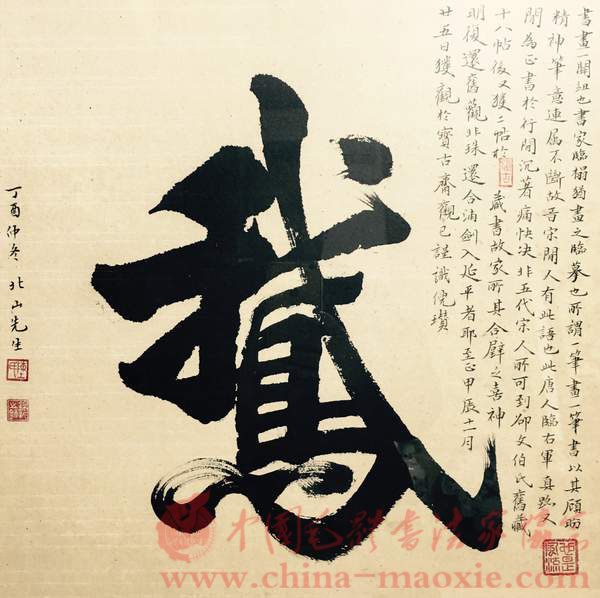 書畫一關紐也書家臨搨猶畫之臨摹也所謂一筆畫一筆書以其顧盼
精神筆意連屬不斷故晋宋間人有此語也此唐人臨右軍真跡又
閒為正書於行間沉著痛快決非五代宋人所可到卻文伯氏舊藏
十八帖後又獲二帖於藏書故家所其合璧之喜神
明復還舊觀非珠還合浦劍入延平者耶至正甲辰十一月
廿五日獲觀於寶古齋觀已謹識倪瓚
鵞
丁酉仲冬 北山先生
中國毛體書法家協會
www.china-maoxie.com